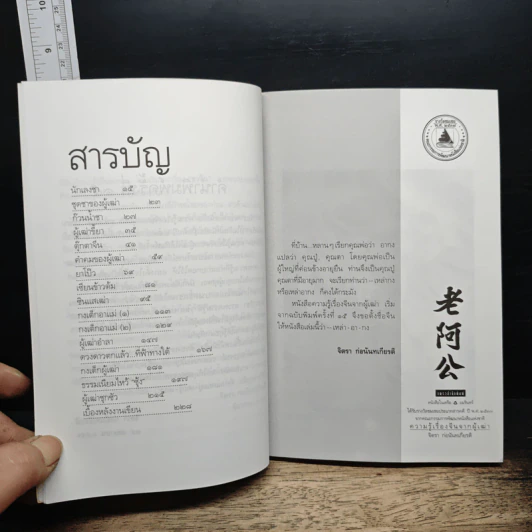 สารบัญ
นักเลงชา ๑๕
ชุดชาของผู้เฒ่า ๒๓
ก๊วนน้ำชา ๒๗
ผู้เฒ่าขี้ยา ๓๕
ตุ๊กตาจีน ๔๑
คำคมของผู้เฒ่า ๕๙
ยกโป๊ว ๖๙
เซียนข้าวต้ม ๘๑
ซินแสเฒ่า ๙๕
กงเต็กอาแม่ (๑) ๑๑๓
กงเต็กอาแม่ (๒) ๑๒๙
ผู้เฒ่าอำลา ๑๔๗
ดวงดาวตกแล้ว...ที่ฟ้าทางใต้ ๑๖๗
กงเต็กผู้เฒ่า ๑๘๑
ธรรมเนียมไหว้ "ซุ้ง" ๑๙๗
ผู้เฒ่าชุกชัว ๒๑๕
เบื้องหลังงานเขียน ๒๒๘
ที่บ้าน...หลานๆ เรียกคุณพ่อว่า อากง
แปลว่า คุณปู่, คุณตา โดยคุณพ่อเป็น
ผู้ใหญ่ที่ค่อนข้างอายุยืน ท่านจึงเป็นคุณปู่
คุณตาที่มีอายุมาก จะเรียกท่านว่า—เหล่ากง
หรือเหล่าอากง ก็คงได้กระมัง
หนังสือความรู้เรื่องจีนจากผู้เฒ่า เริ่ม
จากฉบับพิมพ์ครั้งที่ ๑๕ จึงขอตั้งชื่อจีน
ให้หนังสือเล่มนี้ว่า—เหล่า-อา-กง
จิตรา ก่อนันทเกียรติ
老阿公
ความรู้เรื่องจีนจากผู้เฒ่า
จิตรา ก่อนันทเกียรติ